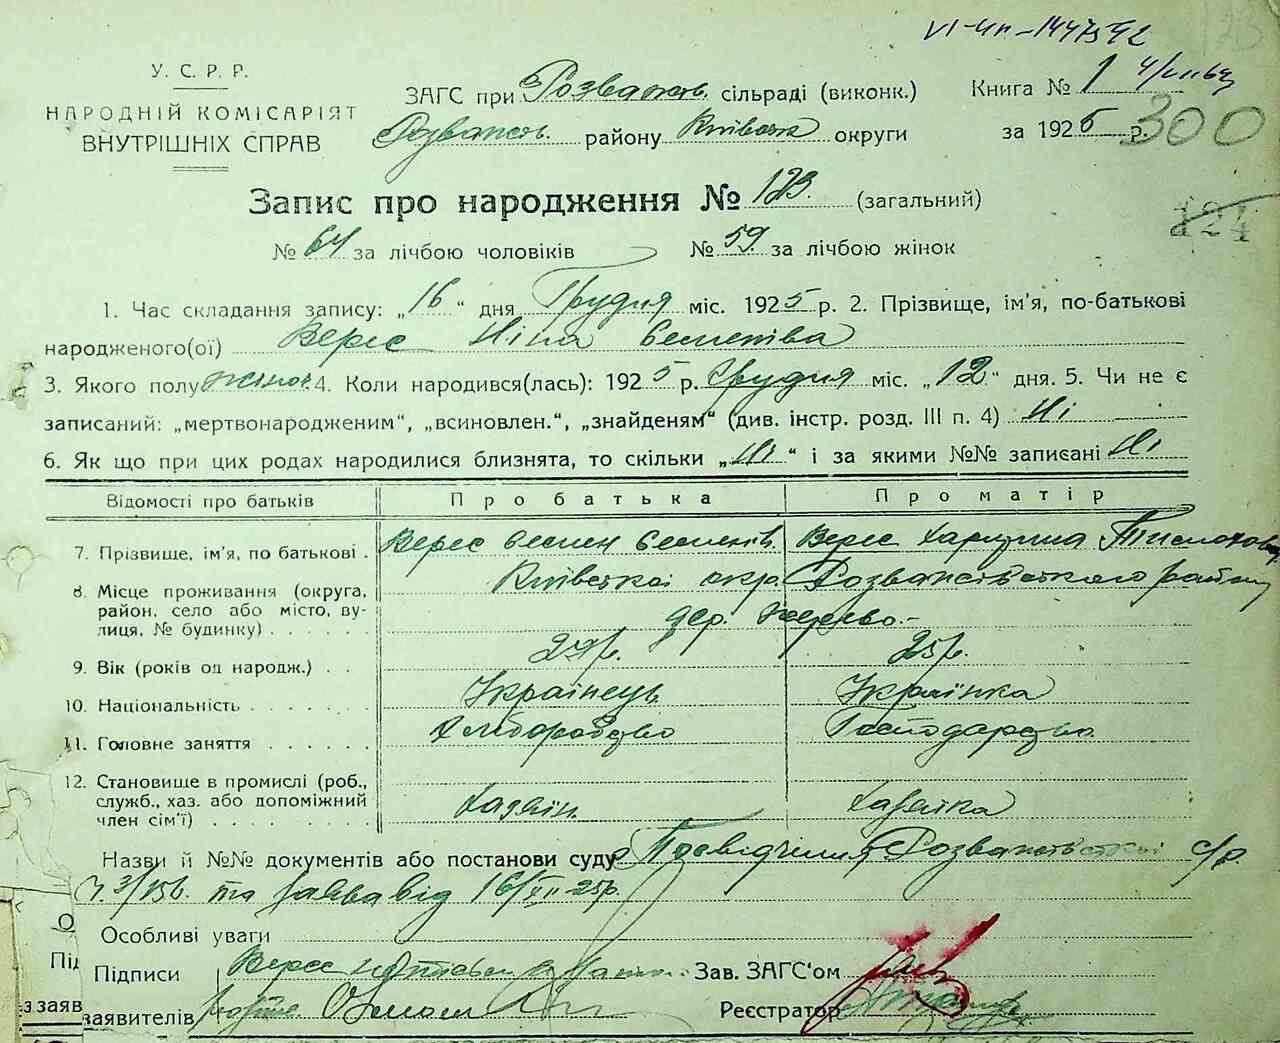 VI-ИК-1447592
У. С. Р. Р.
НАРОДНІЙ КОМІСАРІЯТ
ВНУТРІШНІХ СПРАВ
ЗАГС при Розважів. сільраді (виконк.)
Розважів. району Київськ округи
Книга № 1
за 1925 р. 300
Запис про народження № 123. (загальний)
124
№ 64 за лічбою чоловіків № 59 за лічбою жінок
1. Час складання запису: „16“ дня Грудня міс. 1925 р. 2. Прізвище, ім'я, по-батькові
народженого(ої) Верес Ніна Семенівна
3. Якого полу жіноч. 4. Коли народився(лась): 1925 р. Грудня міс. „12“ дня. 5. Чи не є
записаний: „мертвонародженим“, „всиновлен.“, „знайденям“ (див. інстр. розд. III п. 4) Ні
6. Як що при цих родах народилися близнята, то скільки „Ні“ і за якими №№ записані Ні
Відомості про батьків Про батька Про матір
7. Прізвище, ім'я, по батькові . Верес Семен Семенів. Верес Харитина Тимохов
8. Місце проживання (округа, район, село або місто, вулиця, № будинку) . . . . . Київської окр. Розважівського району
дер.
9. Вік (років од народж.) . . 27 р. 25 р.
10. Національність . . . . . . . Українець Українка
11. Головне заняття . . . . . . Хліборобство Господарство
12. Становище в промислі (роб., служб., хаз. або допоміжний член сім'ї) . . . . . . . . Хазяїн. Хазяйка
Назви й №№ документів або постанови суду Посвідчення Розважівської с/р
та заява від 16/XII-25р.
Особливі уваги
Підписи Верес Зав. ЗАГС'ом
заявителів Реєстратор
О
Під
з заяв